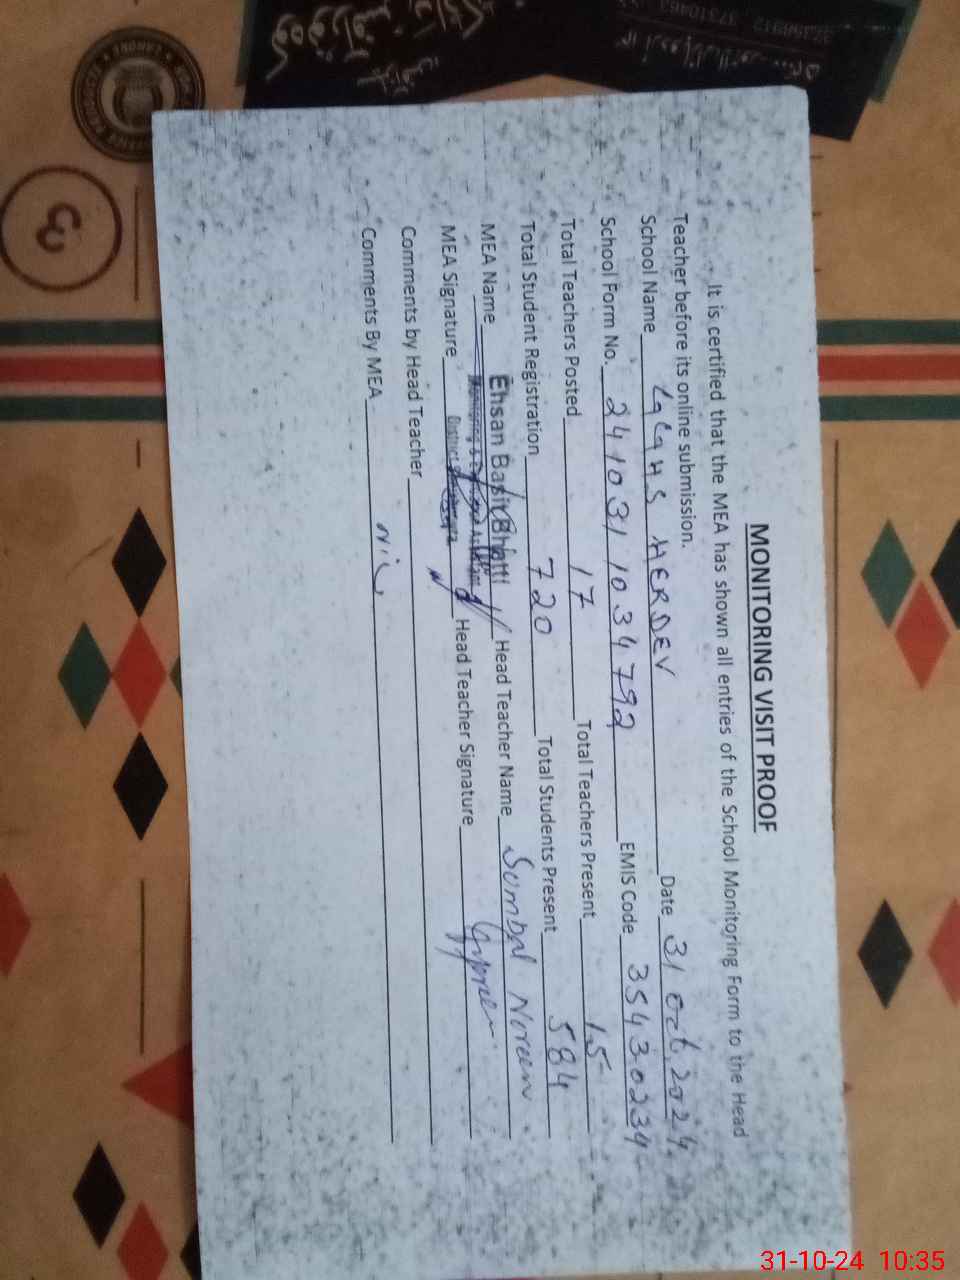 MONITORING VISIT PROOF
It is certified that the MEA has shown all entries of the School Monitoring Form to the Head
Teacher before its online submission.
School Name HERDEV Date 31 Oct, 2024
School Form No. 2410311034792 EMIS Code 35430234
Total Teachers Posted 17 Total Teachers Present 15
Total Student Registration 720 Total Students Present 584
MEA Name Ehsan Basit Bhatti Head Teacher Name Sumbal Noreen
MEA Signature District Head Teacher Signature
Comments by Head Teacher
Comments By MEA Nil
31-10-24 10:35